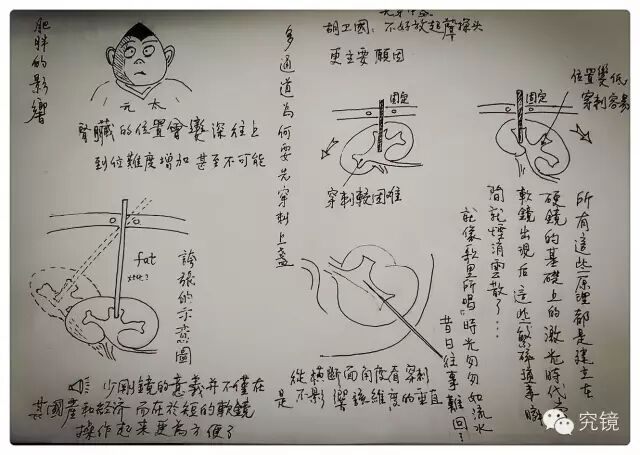 肥胖的影響
元太
腎臟的位置會變深往上
到位難度增加 甚至不可能
fat
誇張的示意圖
少剛鏡的意義并不僅在
其國產和经济 而在於短的軟鏡
操作起来更為方便了
多通道為何要先穿刺上盞
胡卫國: 不好放超聲探头
更主要原因
固定
穿刺較困难
固定
位置變低
穿刺容易
從橫断面角度看 穿刺
是不影響該維度的垂直
所有這些原理都是建立在
硬鏡的基礎上的 激光時代
軟鏡出現后 這些繁
間就煙消雲散了…
就像歌里所唱 時光匆匆如流水
昔日往事難回
究镜